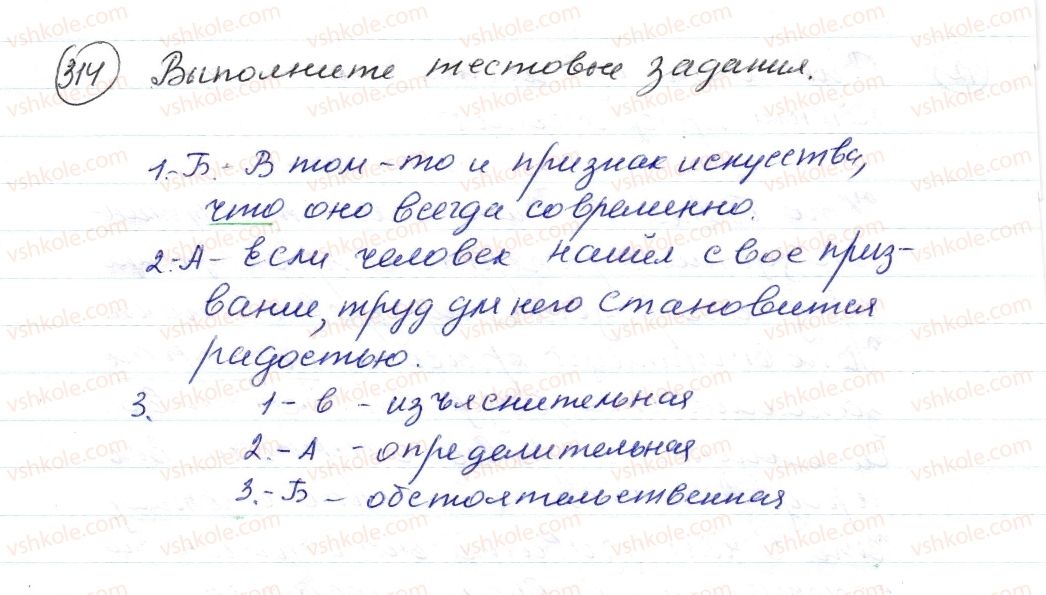 314 Выполните тестовые задания.
1.-Б.- В том-то и признак искусства,
что оно всегда современно.
2.-А- Если человек нашёл свое приз-
вание, труд для него становится
радостью.
3. 1- в - изъяснительная
2.-А - определительная
3.-Б - обстоятельственная